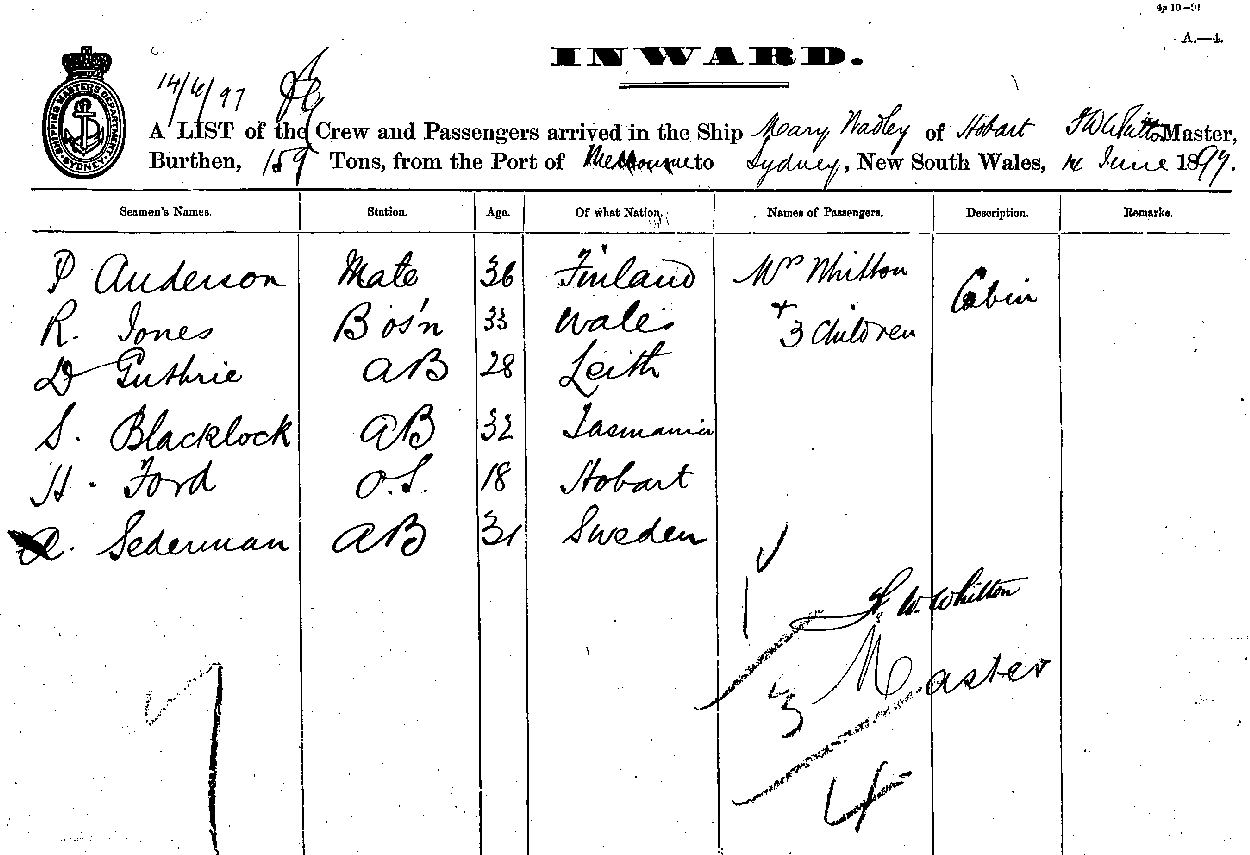 4p 10—91
A.—4.
INWARD.
14/6/97
SHIPPING MASTER'S DEPARTMENT SYDNEY
A LIST of the Crew and Passengers arrived in the Ship Mary Wadley of Hobart Master,
Burthen, 159 Tons, from the Port of Melbourne to Sydney, New South Wales, 14 June 1897.
Seamen's Names. Station. Age. Of what Nation. Names of Passengers. Description. Remarks.
P Anderson Mate 36 Finland Mrs Whitton Cabin
R. Jones Bos'n 33 Wales + 3 Children
D Guthrie AB 28 Leith
S. Blacklock AB 32 Tasmania
H. Ford O.S. 18 Hobart
A. Sederman AB 31 Sweden
1
W. Whitton
Master
3
7
4